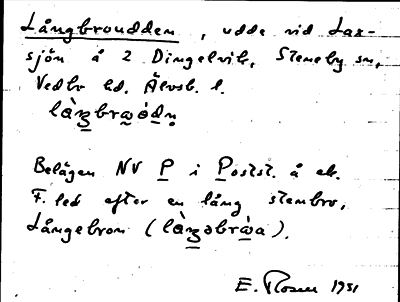 Långbroudden, udde vid Lax-
sjön å 2 Dingelvik, Steneby sn,
Vedbo hd. Älvsb. l.
làŋbrωὰdn̥
Belägen NV P i Postst. å ek.
F. led efter en lång stenbro,
Långebron (làŋəbrωὰa).
E. Rosen 1931